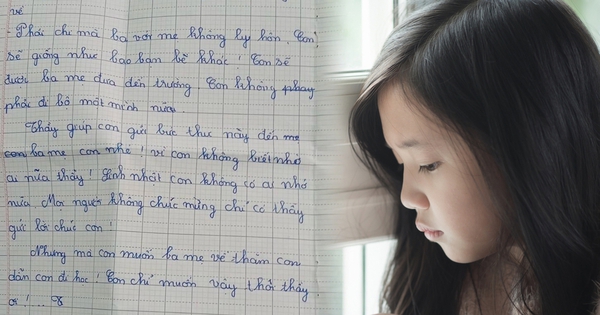 về
- Phải chi mà ba với mẹ không ly hôn, Con
sẽ giống như bao bạn bè khác! Con sẽ
được ba mẹ đưa đến trường. Con không phay
phải đi bộ một mình nữa.
Thầy giúp con gửi bức thư này đến mẹ
con ba mẹ con nhé! vì con không biết nhờ
ai nữa thầy! Sinh nhật con không có ai nhớ
nữa. Mọi người không chúc mừng chỉ có thầy
gửi lời chúc con!
Nhưng mà con muốn ba mẹ về thăm con
dẫn con đi học! Con chỉ muốn vậy thôi thầy
ơi!...